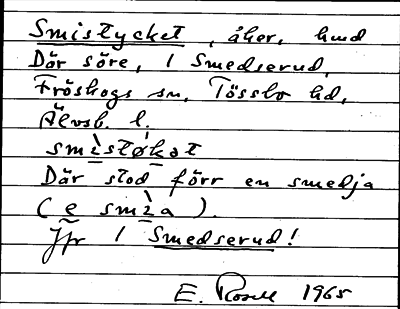 Smistycket, åker, hmd
Där söre, 1 Smedserud,
Fröskogs sn, Tössbo hd,
Älvsb. l.
smìstøkət
Där stod förr en smedja
(e smìa).
Jfr 1 Smedserud!
E. Rosell 1965